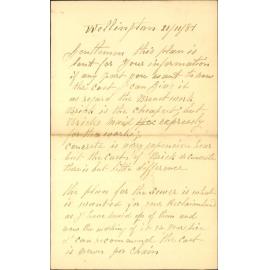 Wellington 21/11/81
Gentlemen this plan is
sent for your information
if any part you want to know
the cost I can give it
as regard the Brunt work
Brick is the cheapest but
Bricks made expressly
for the work
concrete is very expensive here
but the cost of Brick & concrete
there is but little difference
the plan for the sewer is what
is wanted for your Reclaimland
as I have made up of them and
seen the working of it in practice
I can recommend the cost
is given per chain